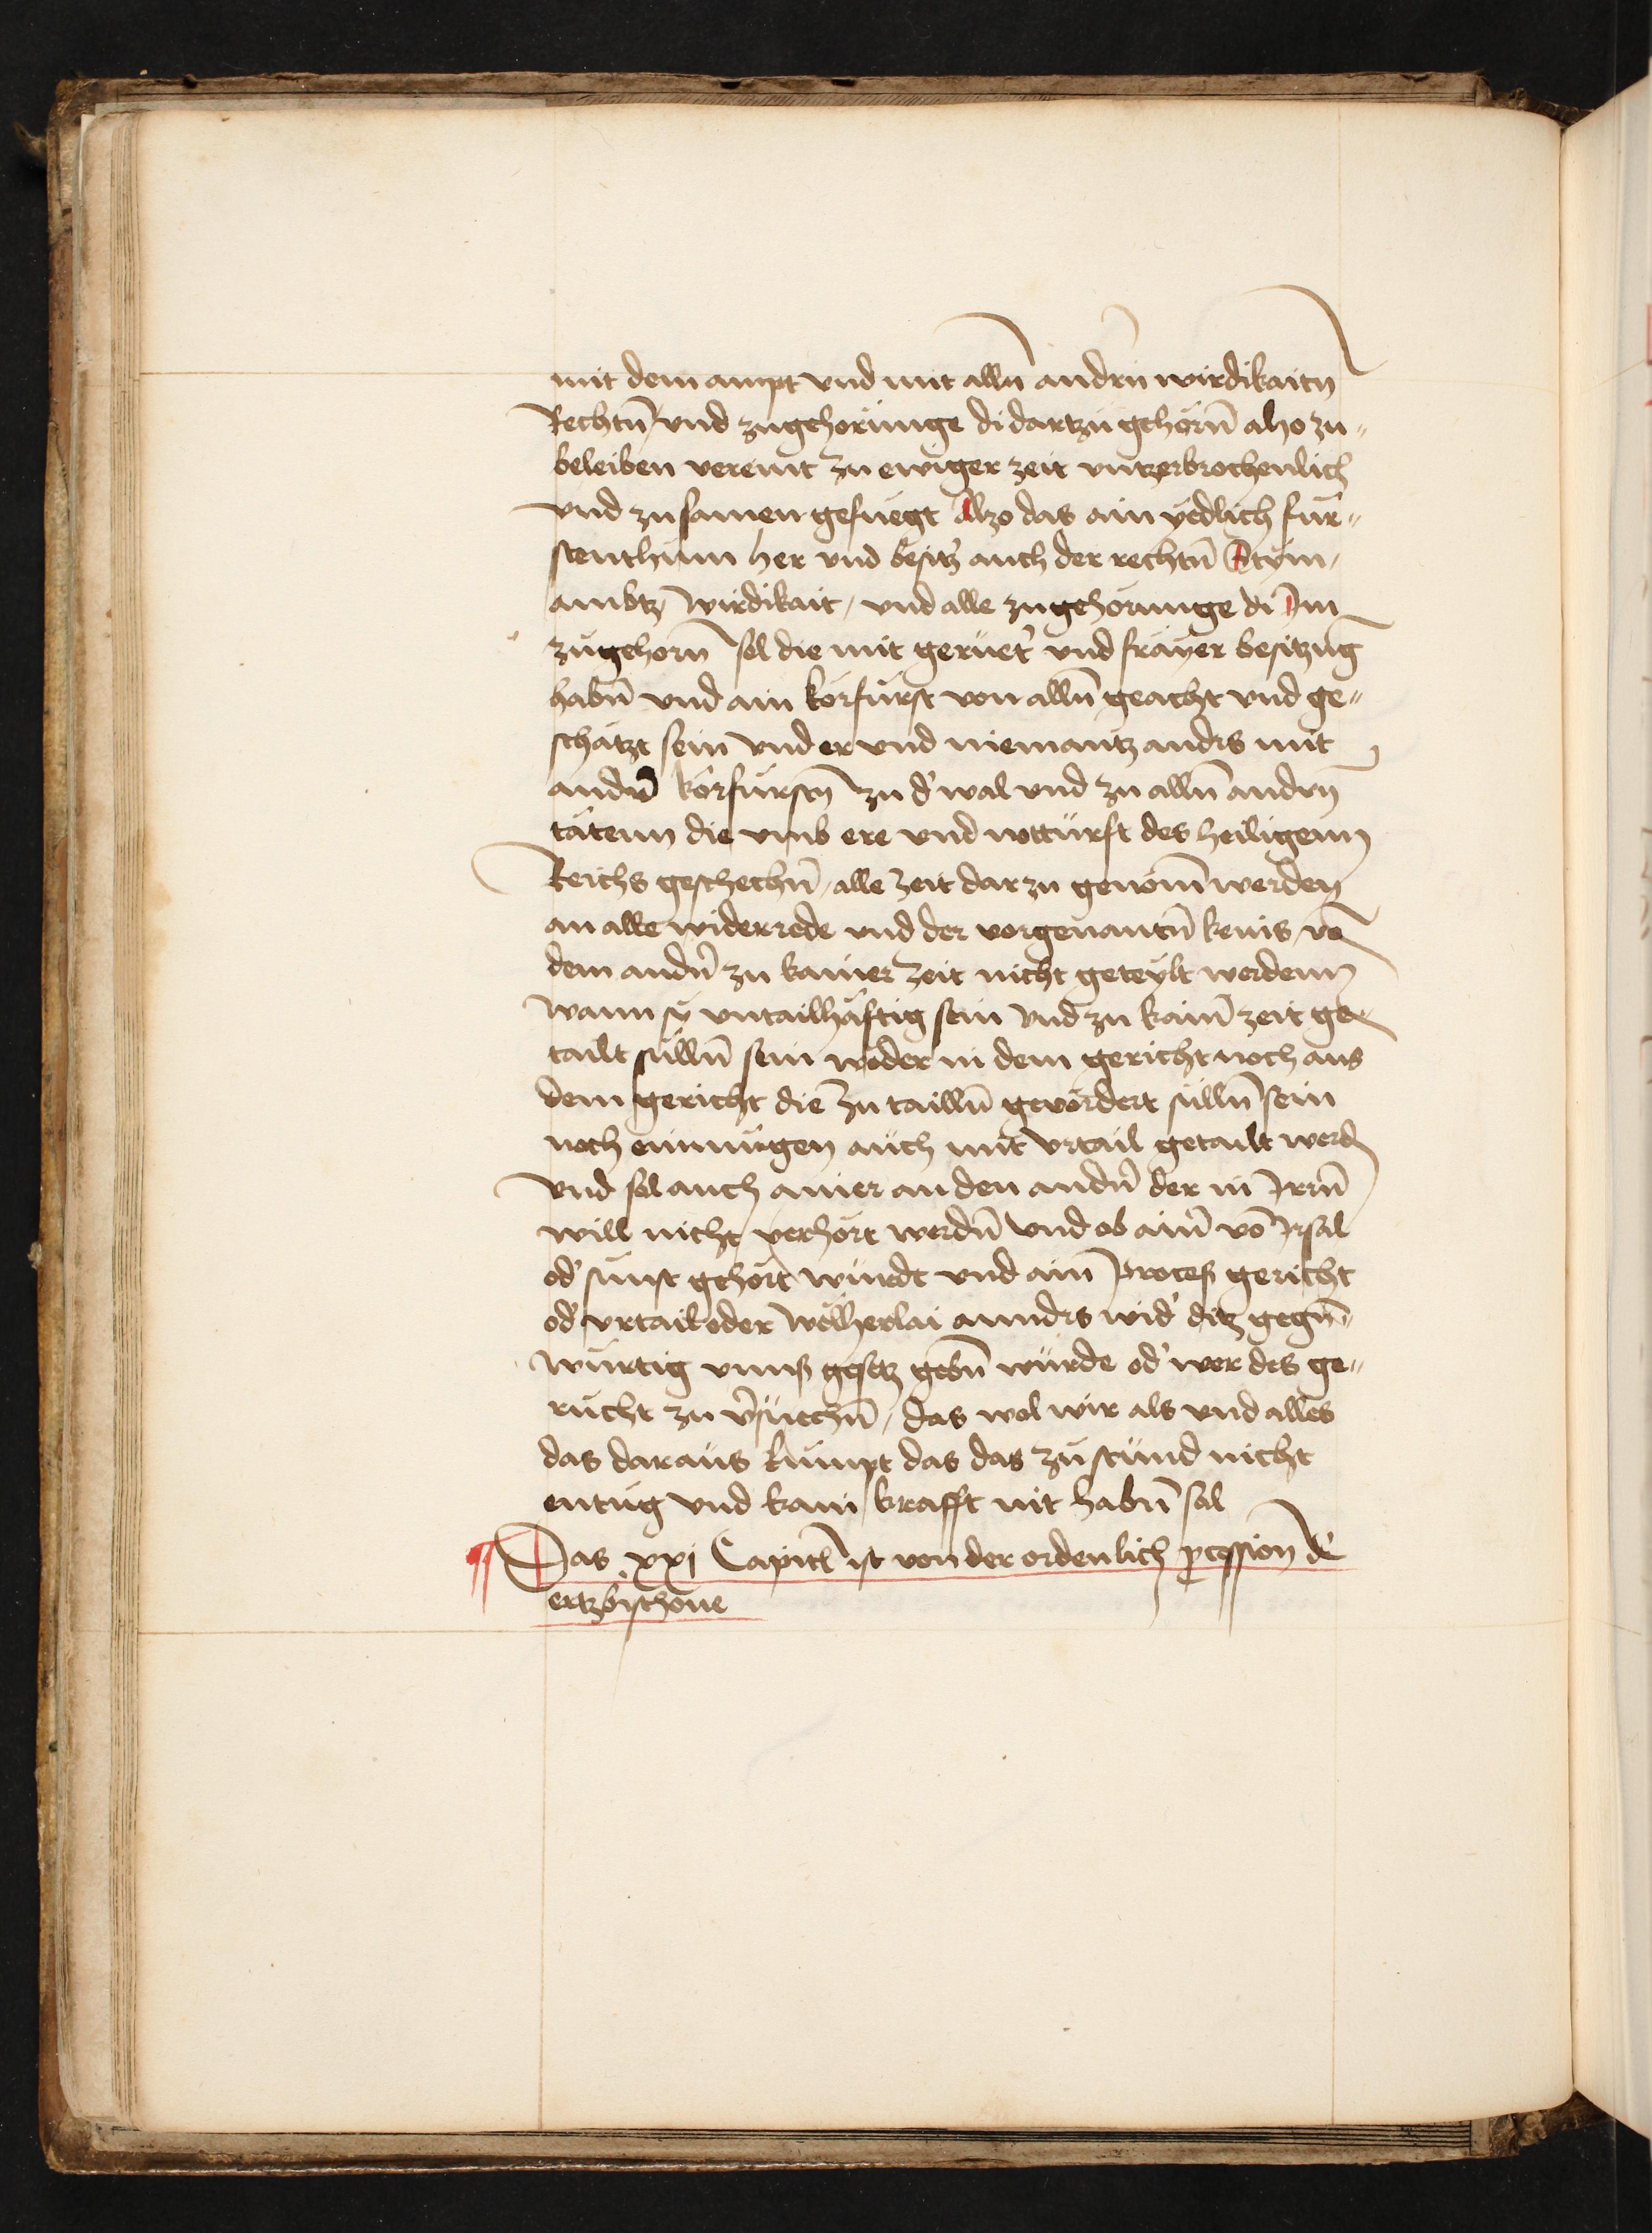 mit dem ampt vnd mit alln̄ andrn̄ wirdikaitn̄
Rechtn̄ vnd zugehorunge di dartzu gehorn̄ also zu„
beleiben vereint zu ewiger zeit vntzerbrochenlich
vnd zusamen gefuegt Alzo das ain yedlich fur„
stenthum her vnd besitz auch der rechtn̄ Stym,
ambtz wirdikait, vnd alle zugehorunge di Im
zugehorn̄ sol die mit geruet' vnd frayer besitzūg
habn̄ vnd ain korfurst von alln̄ geacht vnd ge„
schatzt sein vnd er vnd niemantz andrs mit
andrn̄ korfurstn̄ zu d' wal vnd zu alln̄ andrn̄
tatenn die vmb ere vnd notturft des heiligenn
Reichs geschechn̄, alle zeit darzu genom̄ werden
an alle widerrede vnd der vorgenantn̄ kenis vō
dem andrn̄ zu kainer zeit nicht geteylt werdenn
wann sy vntailhaftig sein vnd zu kain̄ zeit ge„
tailt sulln̄ sein weder in dem gericht noch aus
dem gericht die zu tailln̄ gevordert sulln̄ sein
noch enmugen auch mit vrtail getailt werdn̄
vnd sol auch ainer an den andrn̄ der in Irrn̄
will nicht verhort werdn̄ vnd ob ain̄ vō Irsal
od' sunst gehort wurdt vnd ain Proceß gericht
od' vrtail oder wolherlai anndrs wid' ditz gegn̄„
wurtig vnnß gesetz gebn̄ wurde od' wer des ge„
rucht zu v'suechn̄, das wol wir als vnd alles
das daraus kumpt das das zustund nicht
entug vnd kain krafft nit habn̄ sol
¶ Das .xxj Capitl ist von der ordenlich ꝓcession de'
ertzbischoue